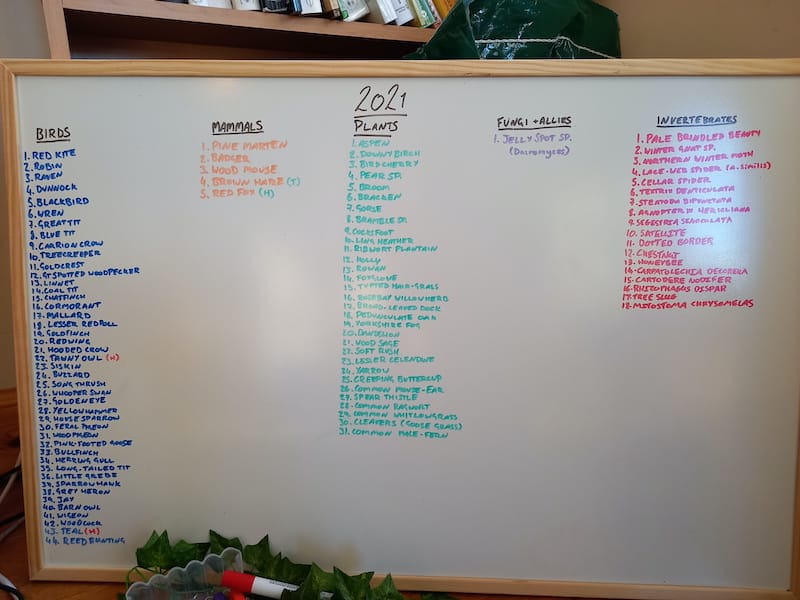 2021
BIRDS
1. RED KITE
2. ROBIN
3. RAVEN
4. DUNNOCK
5. BLACKBIRD
6. WREN
7. GREAT TIT
8. BLUE TIT
9. CARRION CROW
10. TREECREEPER
11. GOLDCREST
12. GT SPOTTED WOODPECKER
13. LINNET
14. COAL TIT
15. CHAFFINCH
16. CORMORANT
17. MALLARD
18. LESSER REDPOLL
19. GOLDFINCH
20. REDWING
21. HOODED CROW
22. TAWNY OWL (H)
23. SISKIN
24. BUZZARD
25. SONG THRUSH
26. WHOOPER SWAN
27. GOLDENEYE
28. YELLOWHAMMER
29. HOUSE SPARROW
30. FERAL PIGEON
31. WOODPIGEON
32. PINK-FOOTED GOOSE
33. BULLFINCH
34. HERRING GULL
35. LONG-TAILED TIT
36. LITTLE GREBE
37. SPARROWHAWK
38. GREY HERON
39. JAY
40. BARN OWL
41. WIGEON
42. WOODCOCK
43. TEAL (H)
44. REED BUNTING
MAMMALS
1. PINE MARTEN
2. BADGER
3. WOOD MOUSE
4. BROWN HARE (T)
5. RED FOX (H)
PLANTS
1. ASPEN
2. DOWNY BIRCH
3. BIRD CHERRY
4. PEAR SP.
5. BROOM
6. BRACKEN
7. GORSE
8. BRAMBLE SP.
9. COCKSFOOT
10. LING HEATHER
11. RIBWORT PLANTAIN
12. HOLLY
13. ROWAN
14. FOXGLOVE
15. TUFTED HAIR-GRASS
16. ROSEBAY WILLOWHERB
17. BROAD-LEAVED DOCK
18. PEDUNCULATE OAK
19. YORKSHIRE FOG
20. DANDELION
21. WOOD SAGE
22. SOFT RUSH
23. LESSER CELENDINE
24. YARROW
25. CREEPING BUTTERCUP
26. COMMON MOUSE-EAR
27. SPEAR THISTLE
28. COMMON RAGWORT
29. COMMON WHITLOWGRASS
30. CLEAVERS (GOOSE GRASS)
31. COMMON MALE-FERN
FUNGI + ALLIES
1. JELLY SPOT SP.
(Dacromyces)
INVERTEBRATES
1. PALE BRINDLED BEAUTY
2. WINTER GNAT SP.
3. NORTHERN WINTER MOTH
4. LACE-WEB SPIDER (A. similis)
5. CELLAR SPIDER
6. TEXTRIX DENTICULATA
7. STEATODA BIPUNCTATA
8. AGNOPTERIX HERICLIANA
9. SEGESTRIA SENOCULATA
10. SATELLITE
11. DOTTED BORDER
12. CHESTNUT
13. HONEYBEE
14. CARPATOLECHIA DECORELLA
15. CARTODERE NODIFER
16. RHIZOPHAGUS DISPAR
17. TREE SLUG
18. MITOSTOMA CHRYSOMELAS